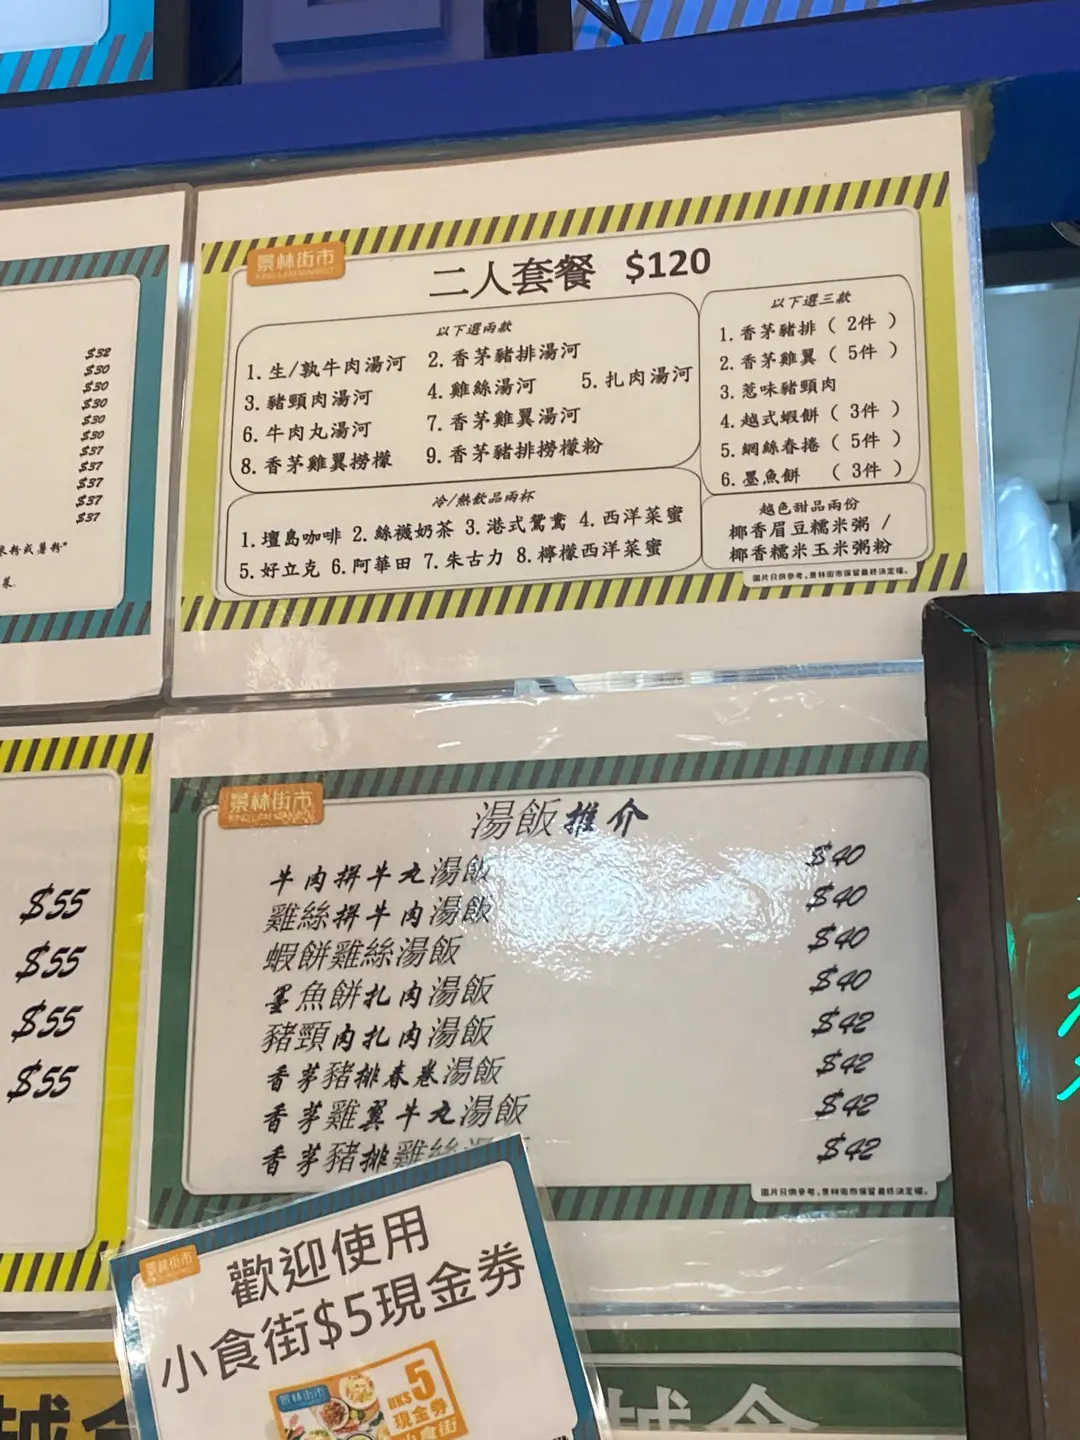 $32
$30
$30
$30
$30
$30
$37
$37
$37
$37
$37
菜
景林街市
KING LAM MARKET
二人套餐 $120
以下選兩款
1. 生/孰牛肉湯河 2. 香茅豬排湯河
3. 豬頸肉湯河 4. 雞絲湯河 5. 扎肉湯河
6. 牛肉丸湯河 7. 香茅雞翼湯河
8. 香茅雞翼撈檬 9. 香茅豬排撈檬粉
以下選三款
1. 香茅豬排 ( 2件 )
2. 香茅雞翼 ( 5件 )
3. 惹味豬頸肉
4. 越式蝦餅 ( 3件 )
5. 網絲春捲 ( 5件 )
6. 墨魚餅 ( 3件 )
冷/熱飲品兩杯
1. 壇島咖啡 2. 絲襪奶茶 3. 港式鴛鴦 4. 西洋菜蜜
5. 好立克 6. 阿華田 7. 朱古力 8. 檸檬西洋菜蜜
越色甜品兩份
椰香眉豆糯米粥 /
椰香糯米玉米粥粉
圖片只供參考，景林街市保留最終決定權。
$55
$55
$55
$55
景林街市
KING LAM MARKET
湯飯推介
牛肉拼牛丸湯飯 $40
雞絲拼牛肉湯飯 $40
蝦餅雞絲湯飯 $40
墨魚餅扎肉湯飯 $40
豬頸肉扎肉湯飯 $42
香茅豬排春卷湯飯 $42
香茅雞翼牛丸湯飯 $42
香茅豬排雞絲 $42
圖片只供參考，景林街市保留最終決定權。
景林街市
歡迎使用
小食街$5現金券
景林街市
HK$5
現金券
小食街